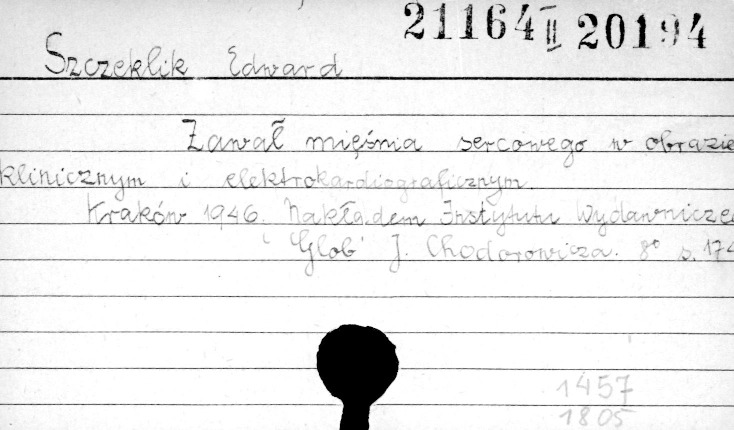 21164 II 20194
Szczeklik Edward
Zawał mięśnia sercowego w obrazie
klinicznym i elektrokardiograficznym.
Kraków 1946. Nakładem Instytutu Wydawnicze
"Glob" J. Chodorowicza. 8° s. 174
1457
1805